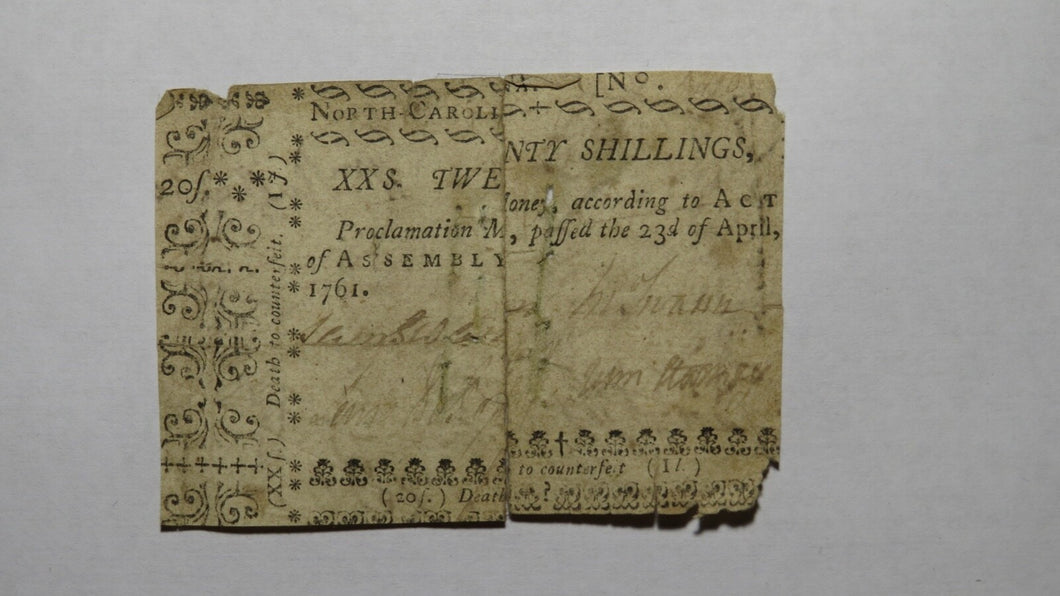 NORTH-CAROLI [No.
XXS. TWENTY SHILLINGS,
Proclamation Money, according to ACT
of ASSEMBLY, paſſed the 23d of April,
1761.
Swann
(20ſ.) Death to counterfeit (1l.)
20ſ.
(XXſ.) Death to counterfeit.